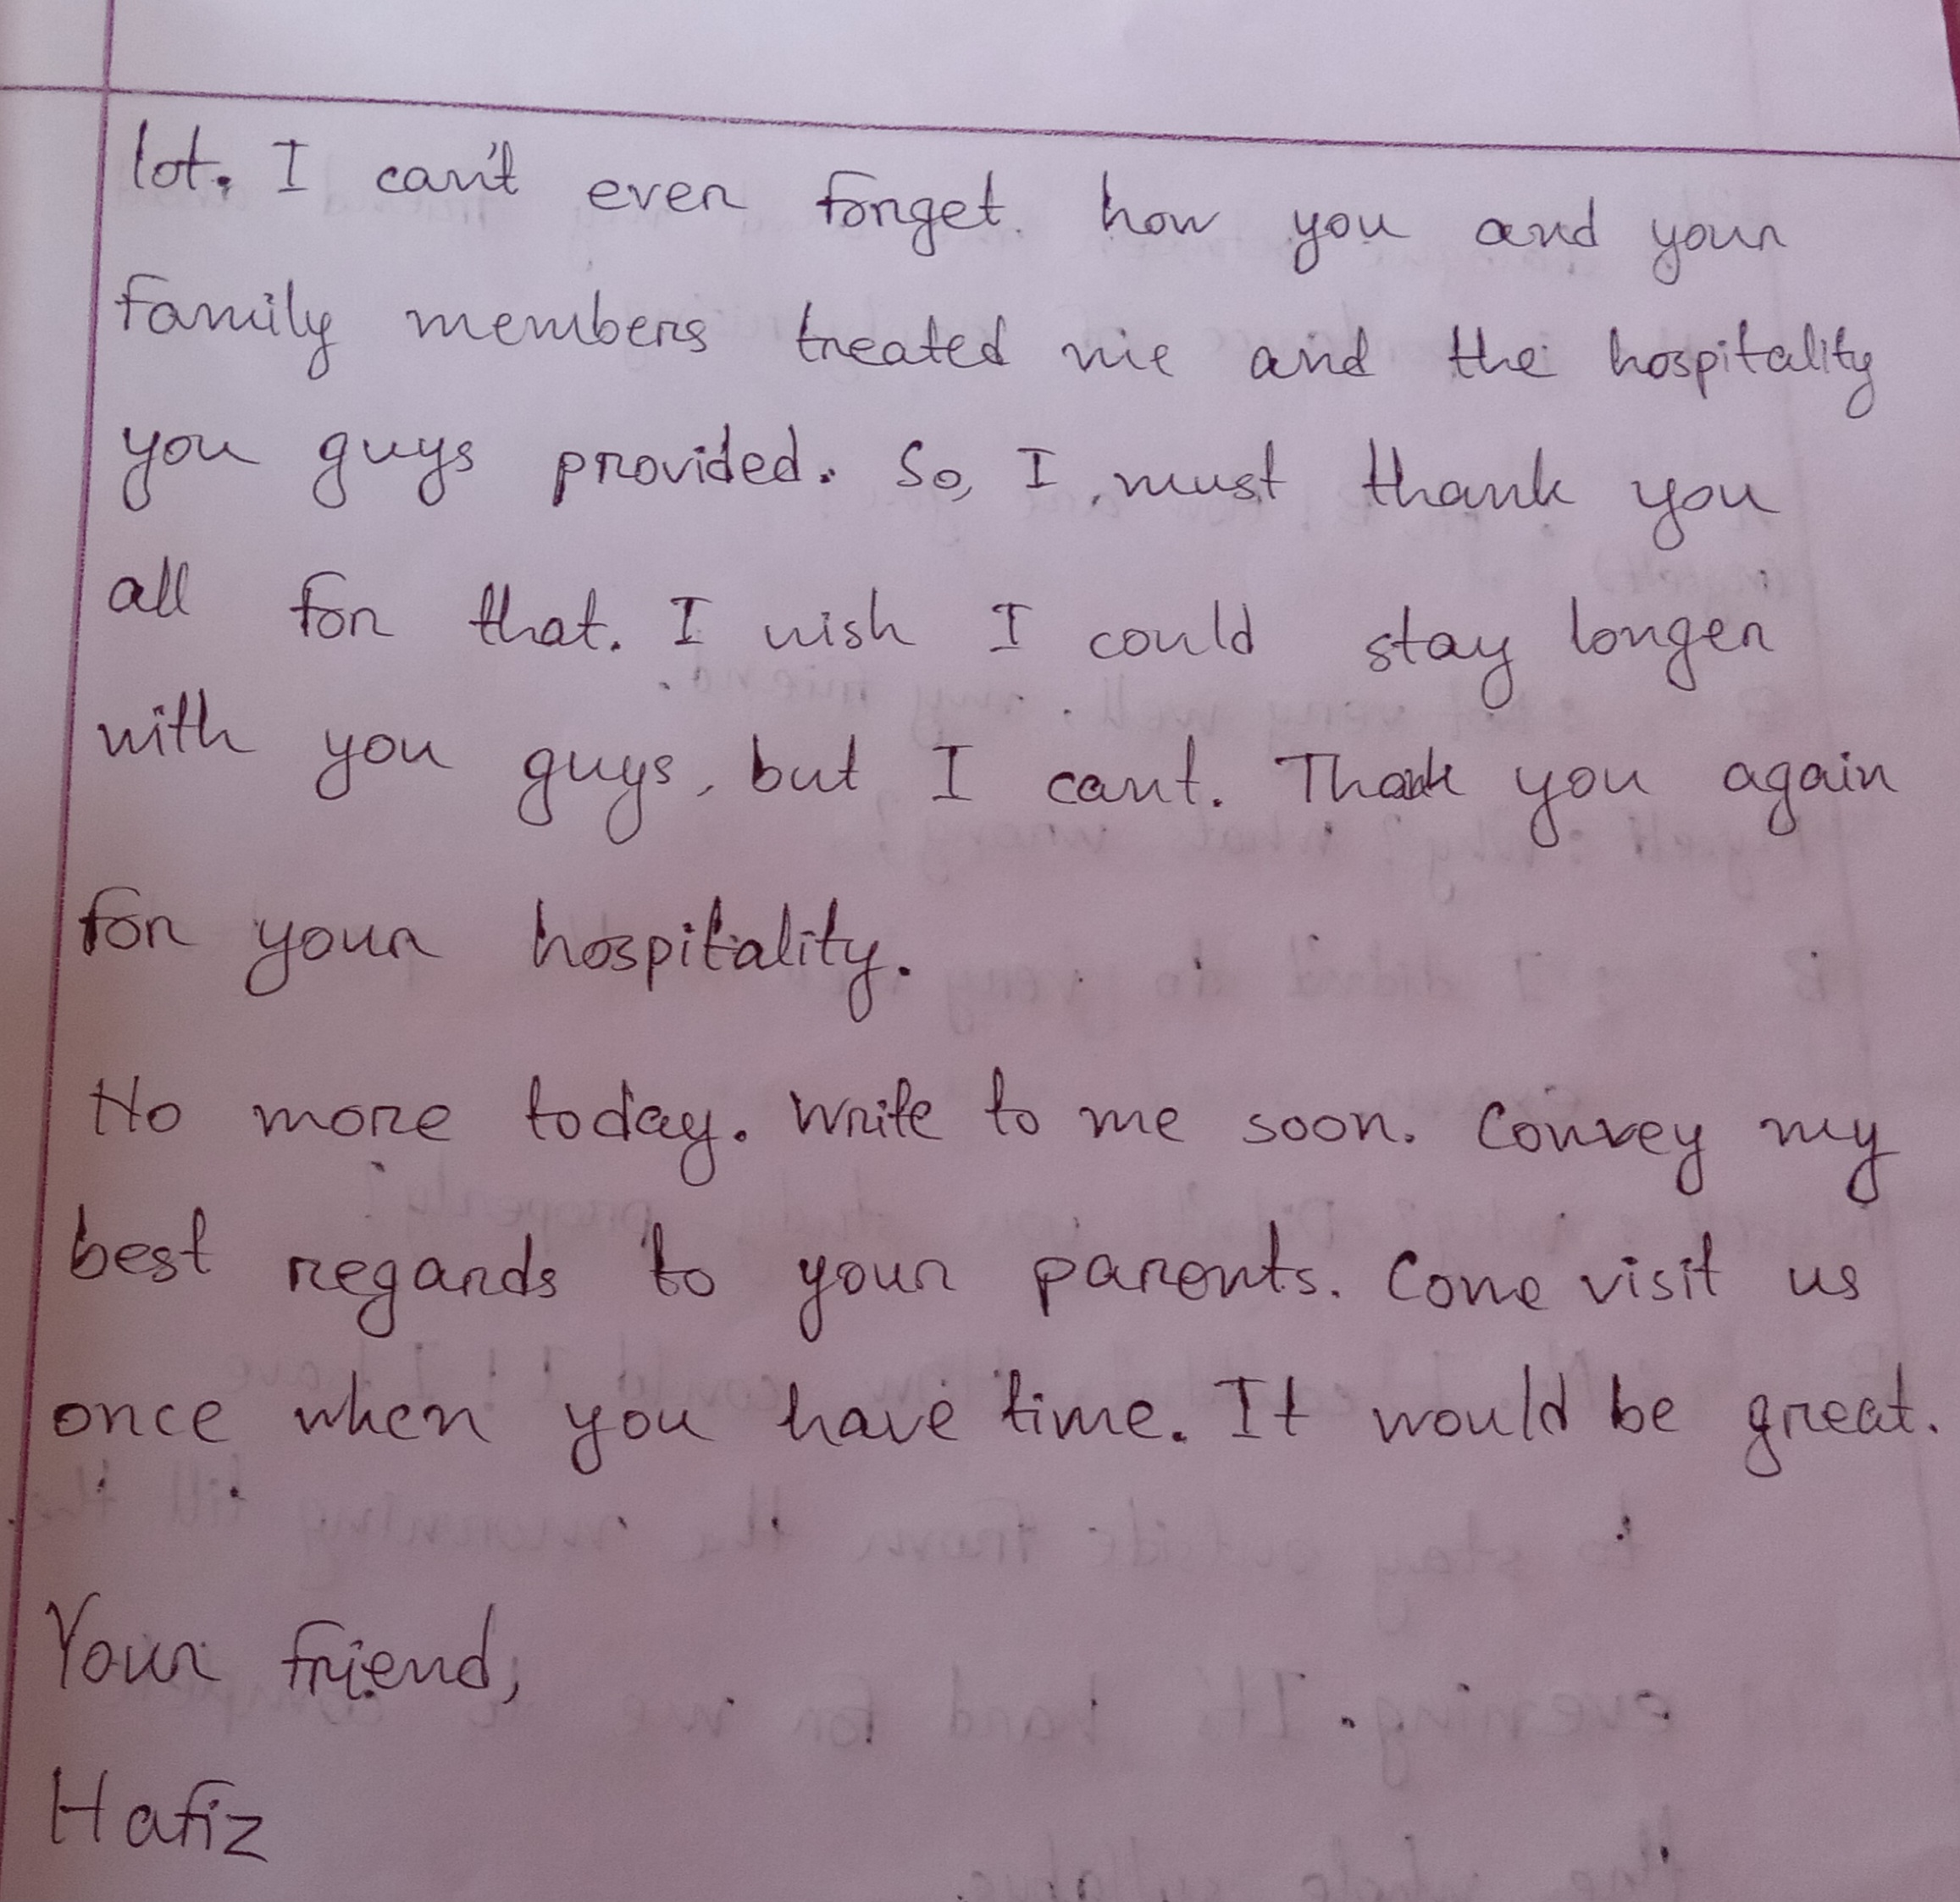 lot. I can't even forget how you and your
family members treated me and the hospitality
you guys provided. So, I must thank you
all for that. I wish I could stay longer
with you guys, but I cant. Thank you again
for your hospitality.
No more today. Write to me soon. Convey my
best regards to your parents. Come visit us
once when you have time. It would be great.
Your friend,
Hafiz